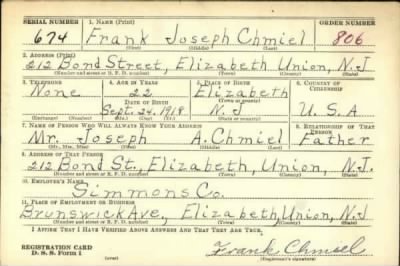 SERIAL NUMBER 1. NAME (Print) ORDER NUMBER
674 Frank Joseph Chmiel 806
(First) (Middle) (Last)
2. ADDRESS (Print)
212 Bond Street, Elizabeth Union, N.J
(Number and street or R. F. D. number) (Town) (County) (State)
3. TELEPHONE 4. AGE IN YEARS 5. PLACE OF BIRTH 6. COUNTRY OF CITIZENSHIP
None 22 Elizabeth
DATE OF BIRTH (Town or county)
Sept. 24, 1918 N.J U.S.A
(Exchange) (Number) (Mo.) (Day) (Yr.) (State or country)
7. NAME OF PERSON WHO WILL ALWAYS KNOW YOUR ADDRESS 8. RELATIONSHIP OF THAT PERSON
Mr. Joseph A. Chmiel Father
(Mr., Mrs., Miss) (First) (Middle) (Last)
9. ADDRESS OF THAT PERSON
212 Bond St., Elizabeth, Union, N.J.
(Number and street or R. F. D. number) (Town) (County) (State)
10. EMPLOYER'S NAME
Simmons Co.
11. PLACE OF EMPLOYMENT OR BUSINESS
Brunswick Ave, Elizabeth, Union, N.J
(Number and street or R. F. D. number) (Town) (County) (State)
I AFFIRM THAT I HAVE VERIFIED ABOVE ANSWERS AND THAT THEY ARE TRUE.
REGISTRATION CARD
D. S. S. Form 1 Frank Chmiel
(Registrant's signature)